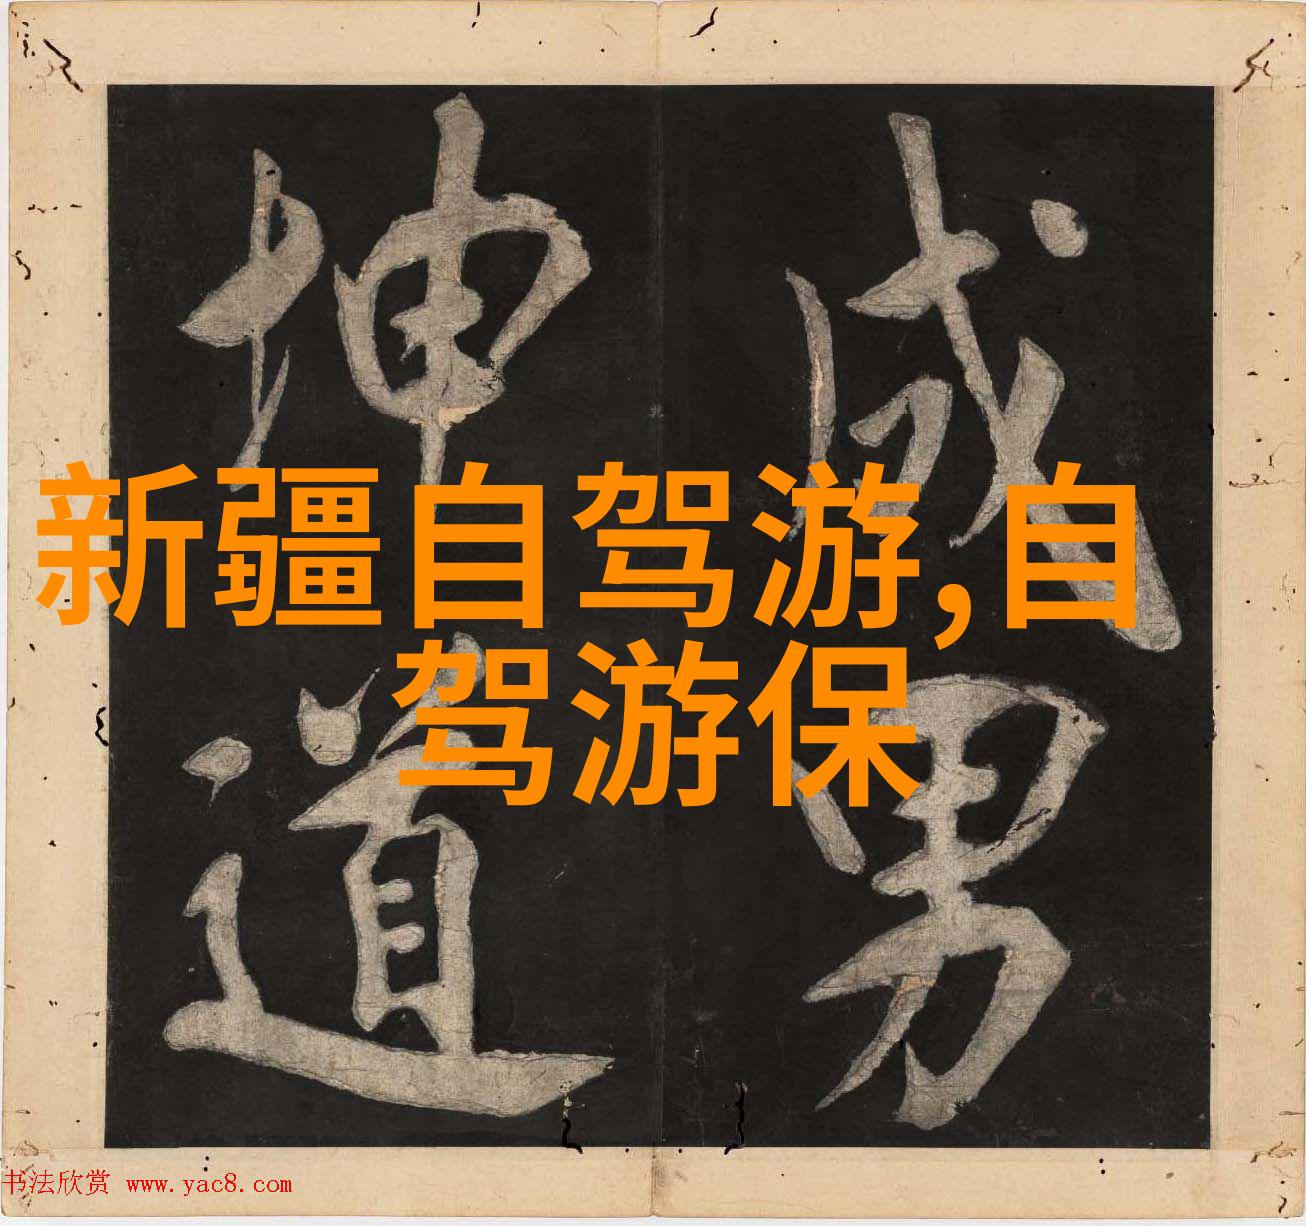 成男
坤道
新疆自驾游,自
驾游保
书法欣赏 www.yac8.com